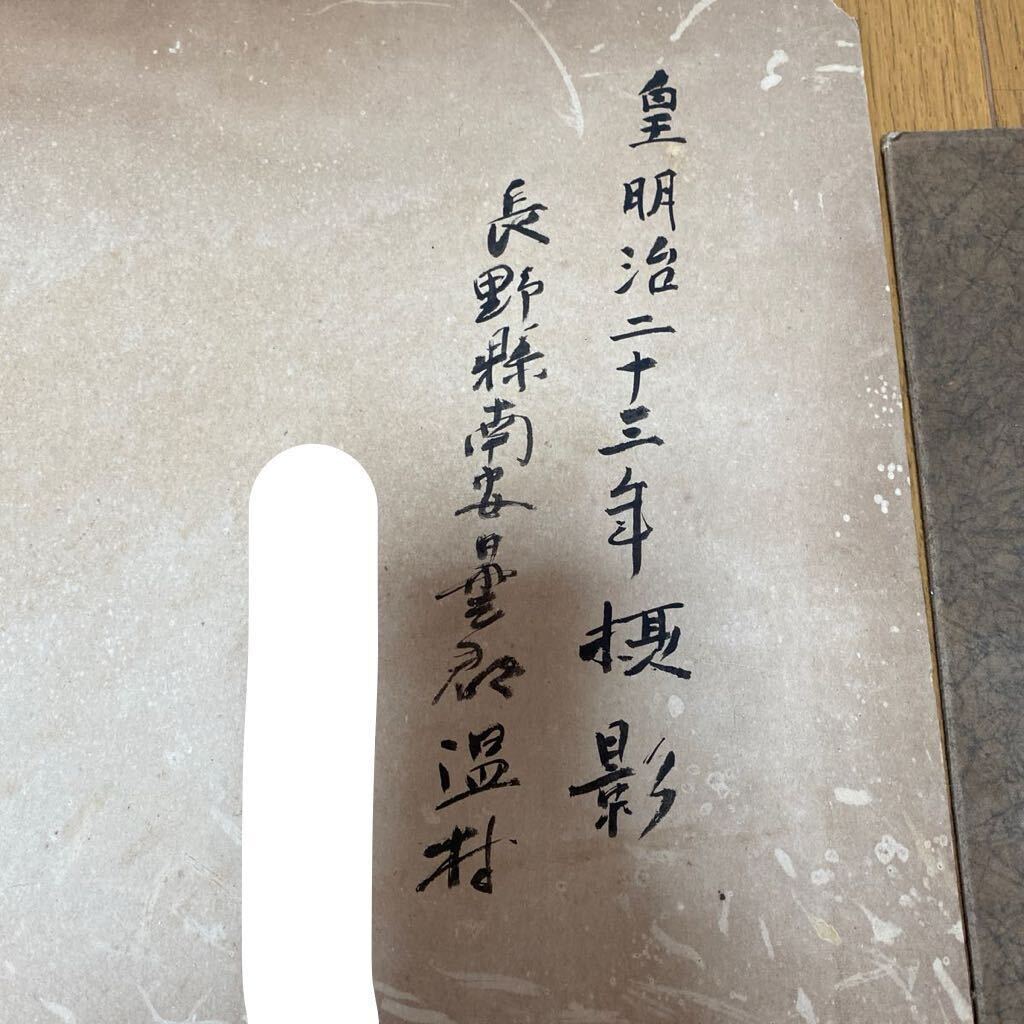 皇明治二十三年撮影
長野縣南安曇郡温村